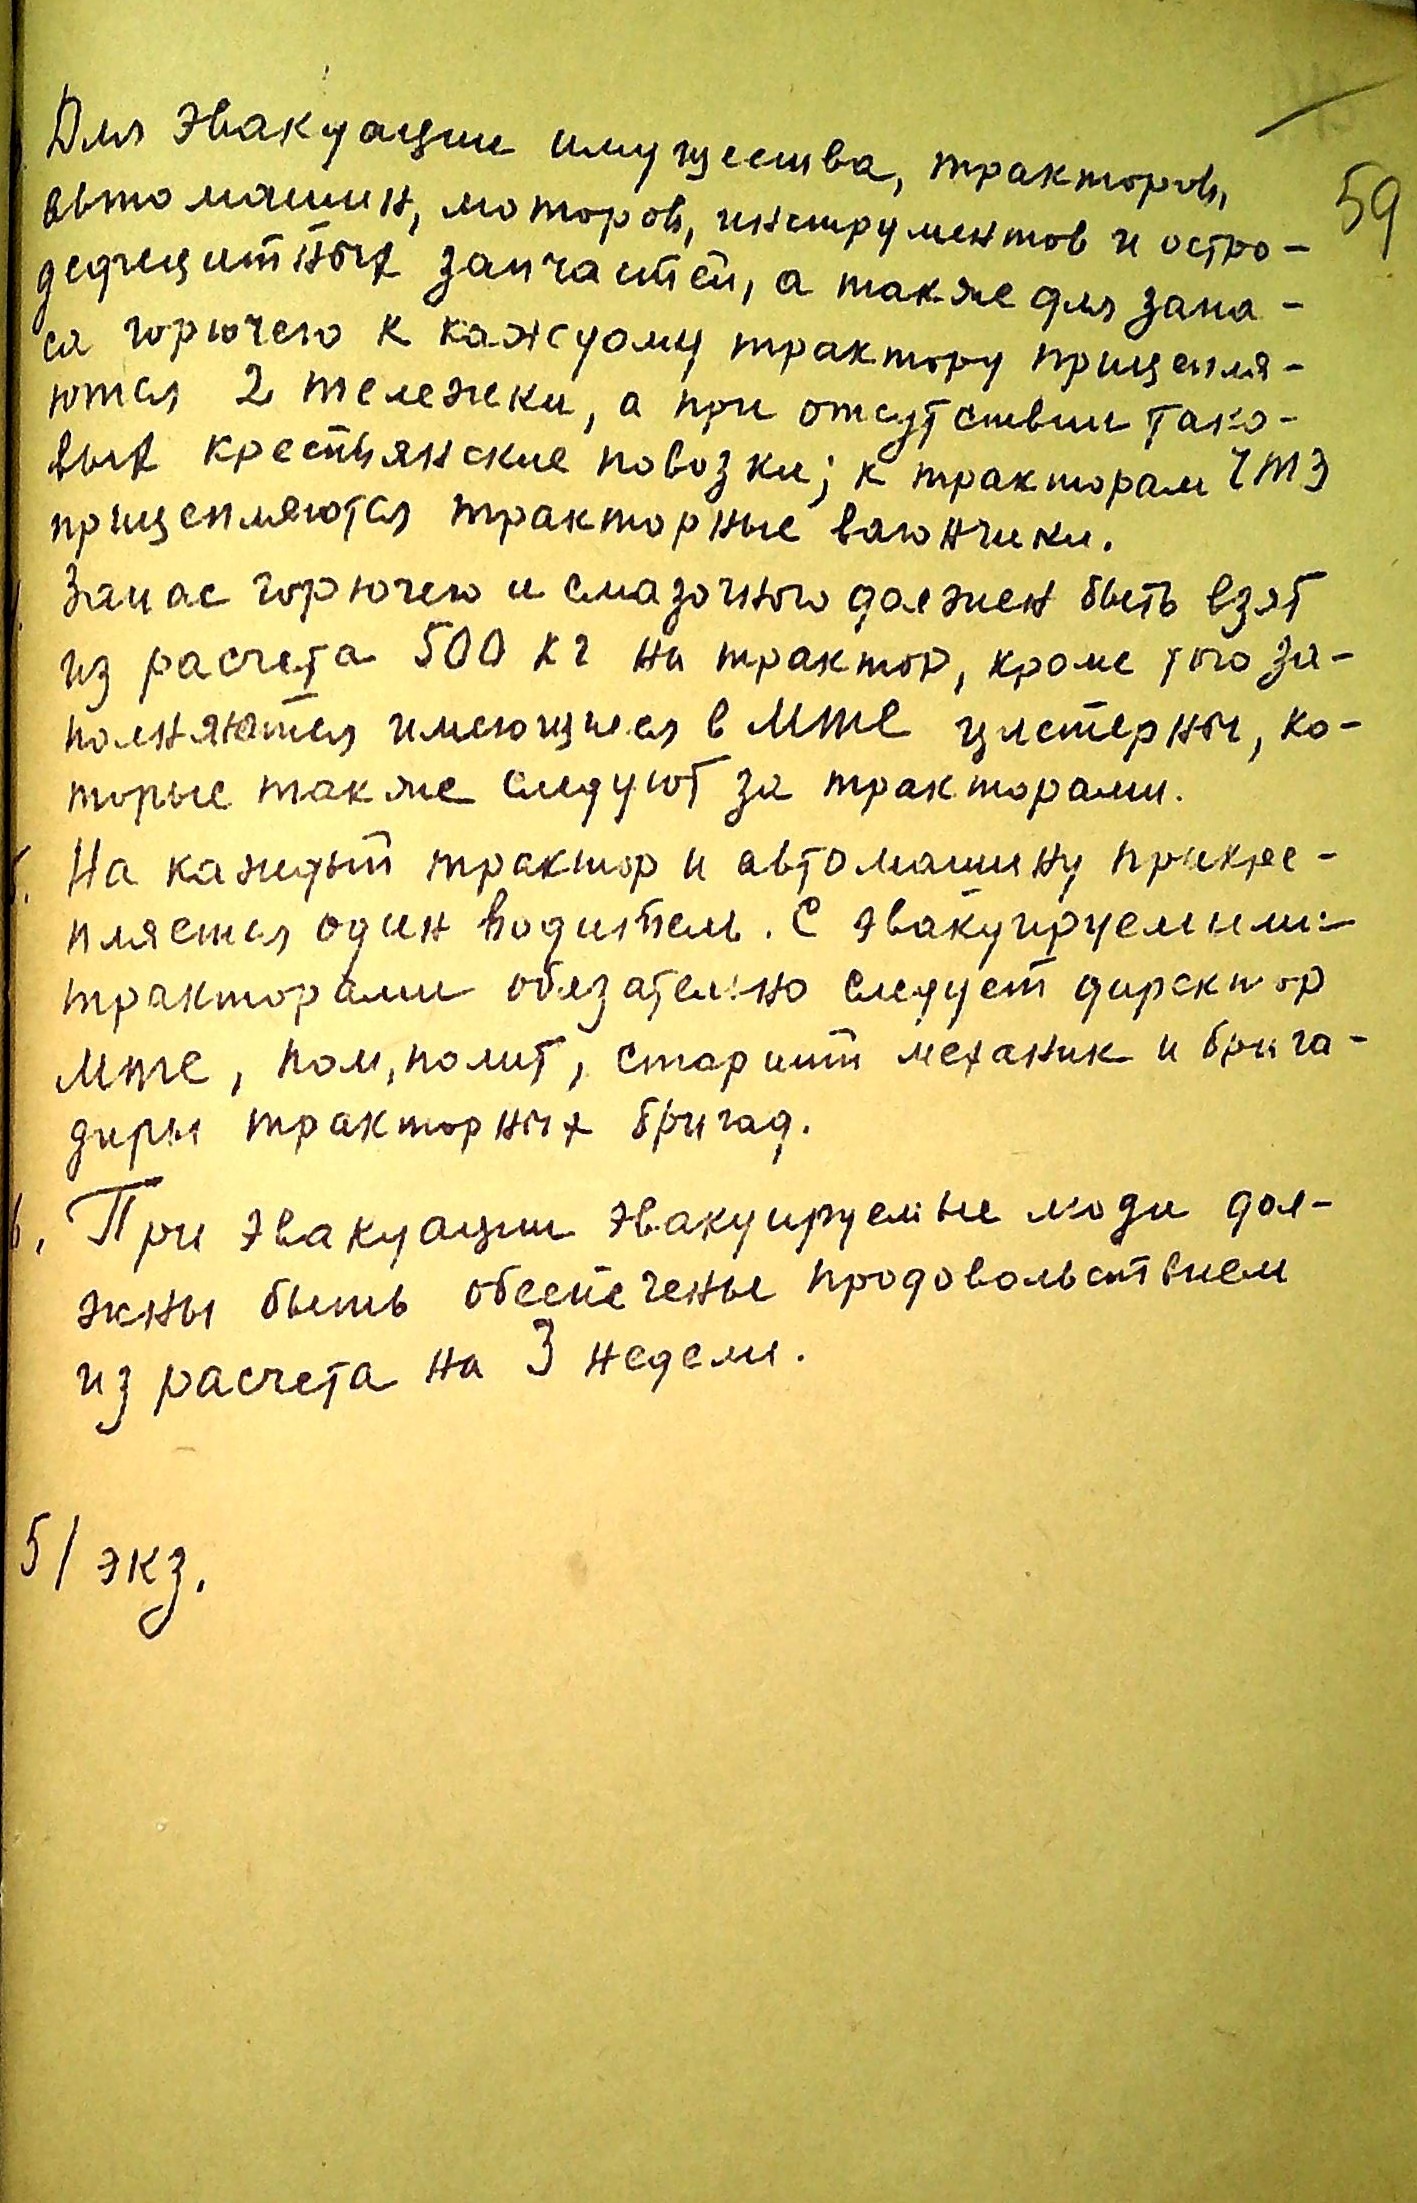 59
Для эвакуации имущества, тракторов,
автомашин, моторов, инструментов и остро-
дефицитных запчастей, а также для запа-
са горючего к каждому трактору прицепля-
ются 2 тележки, а при отсутствии тако-
вых крестьянские повозки; к тракторам ЧТЗ
прицепляются тракторные вагончики.
Запас горючего и смазочного должен быть взят
из расчета 500 кг на трактор, кроме того за-
полняются имеющиеся в МТС цистерны, ко-
торые также следуют за тракторами.
На каждый трактор и автомашину прикре-
пляется один водитель. С эвакуируемыми
тракторами обязательно следует директор
МТС, пом, полит, старший механик и брига-
диры тракторных бригад.
6. При эвакуации эвакуируемые люди дол-
жны быть обеспечены продовольствием
из расчета на 3 недели.
5/ экз.